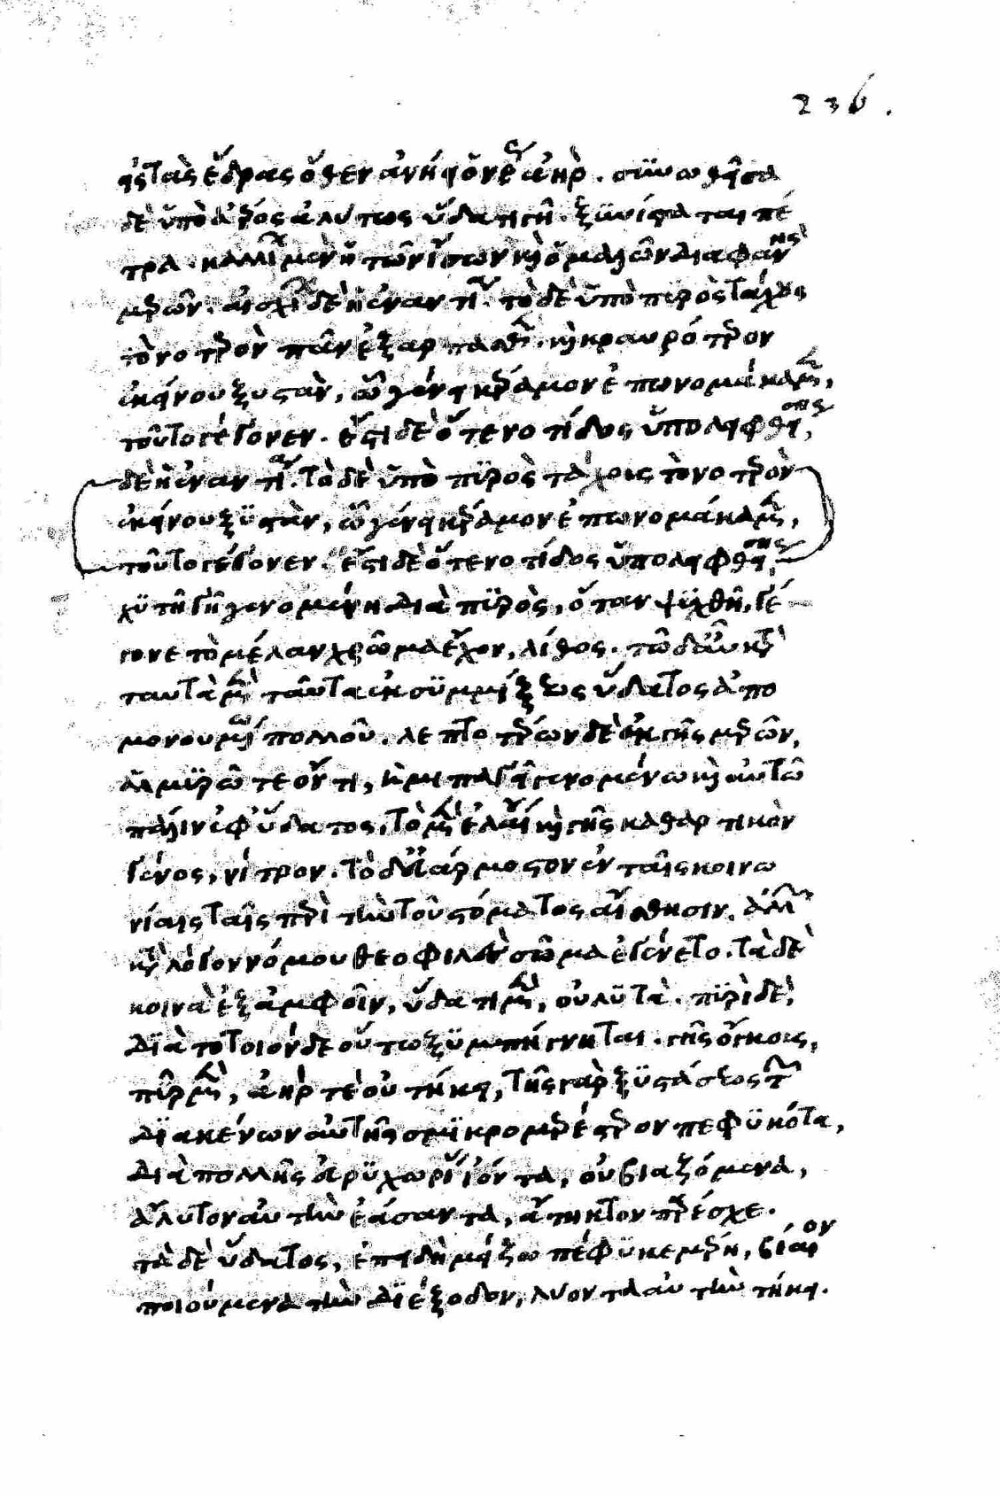 εἰς τὰς ἕδρας ὅθεν ἀνήει ὁ νέος ἀήρ. συνωσθεῖσα
δὲ ὑπὸ ἀέρος ἀλύτως ὕδατι γῆ. ξυνίσταται πέ
τρα. καλλίων μὲν ἡ τῶν ἴσων καὶ ὁμαλῶν διαφανὴς
μερῶν. αἰσχίων δὲ ἡ ἐναντία. τὸ δὲ ὑπὸ πυρὸς τάχους
τὸ νοτερὸν πᾶν ἐξαρπασθὲν. καὶ κραυρότερον
ἐκείνου ξυστὰν, ᾧ γένει κέραμον ἐπωνομάκαμεν,
τοῦτο γέγονεν. ἔστι δὲ ὅτε νοτίδος ὑπολειφθείσης,
δὲ ἡ ἐναντία. τὸ δὲ ὑπὸ πυρὸς τάχους τὸ νοτερὸν
ἐκείνου ξυστὰν, ᾧ γένει κέραμον ἐπωνομάκαμεν,
τοῦτο γέγονεν. ἔστι δὲ ὅτε νοτίδος ὑπολειφθείσης,
χυτὴ γῆ γενομένη διὰ πυρὸς, ὅταν ψυχθῆ, γέ
γονε τὸ μέλαν χρῶμα ἔχον, λίθος. τῶ δ' αὖ κατὰ
ταυτὰ μὲν ταῦτα ἐκ συμμίξεως ὕδατος ἀπο
μονουμένω πολλοῦ. λεπτοτέρων δὲ ἐκ γῆς μερῶν,
ἁλμυρῶ τε ὄντι, ἡμιπαγῆ γενομένω καὶ αὐτῶ
πάλιν ὑφ' ὕδατος, τὸ μὲν ἐλαίου καὶ γῆς καθαρτικὸν
γένος, νίτρον. τὸ δ' εὐάρμοστον ἐν ταῖς κοινω
νίαις ταῖς περὶ τὴν τοῦ στόματος αἴσθησιν. ἁλῶν
κατὰ λόγον νόμου θεοφιλὲς σῶμα ἐγένετο. τὰ δὲ
κοινὰ ἐξ ἀμφοῖν, ὕδατι μὲν, οὐ λυτὰ. πυρὶ δὲ,
διὰ τὸ τοιόνδε οὕτω ξυμπήγνυται. γῆς ὄγκους,
πῦρ μὲν, ἀήρ τε οὐ τήκει, τῆς γὰρ ξυστάσεως τῶν
διακένων αὐτῆς σμικρομερέστερον πεφυκότα,
διὰ πολλῆς εὐρυχωρίας ἰόντα, οὐ βιαζόμενα,
ἄλυτον αὐτὴν ἐάσαντα, ἄτηκτον παρέσχε.
τὰ δὲ ὕδατος, ἐπειδὴ μείζω πέφυκε μέρη, βίαιον
ποιούμενα τὴν διέξοδον, λύοντα αὐτὴν τήκει.